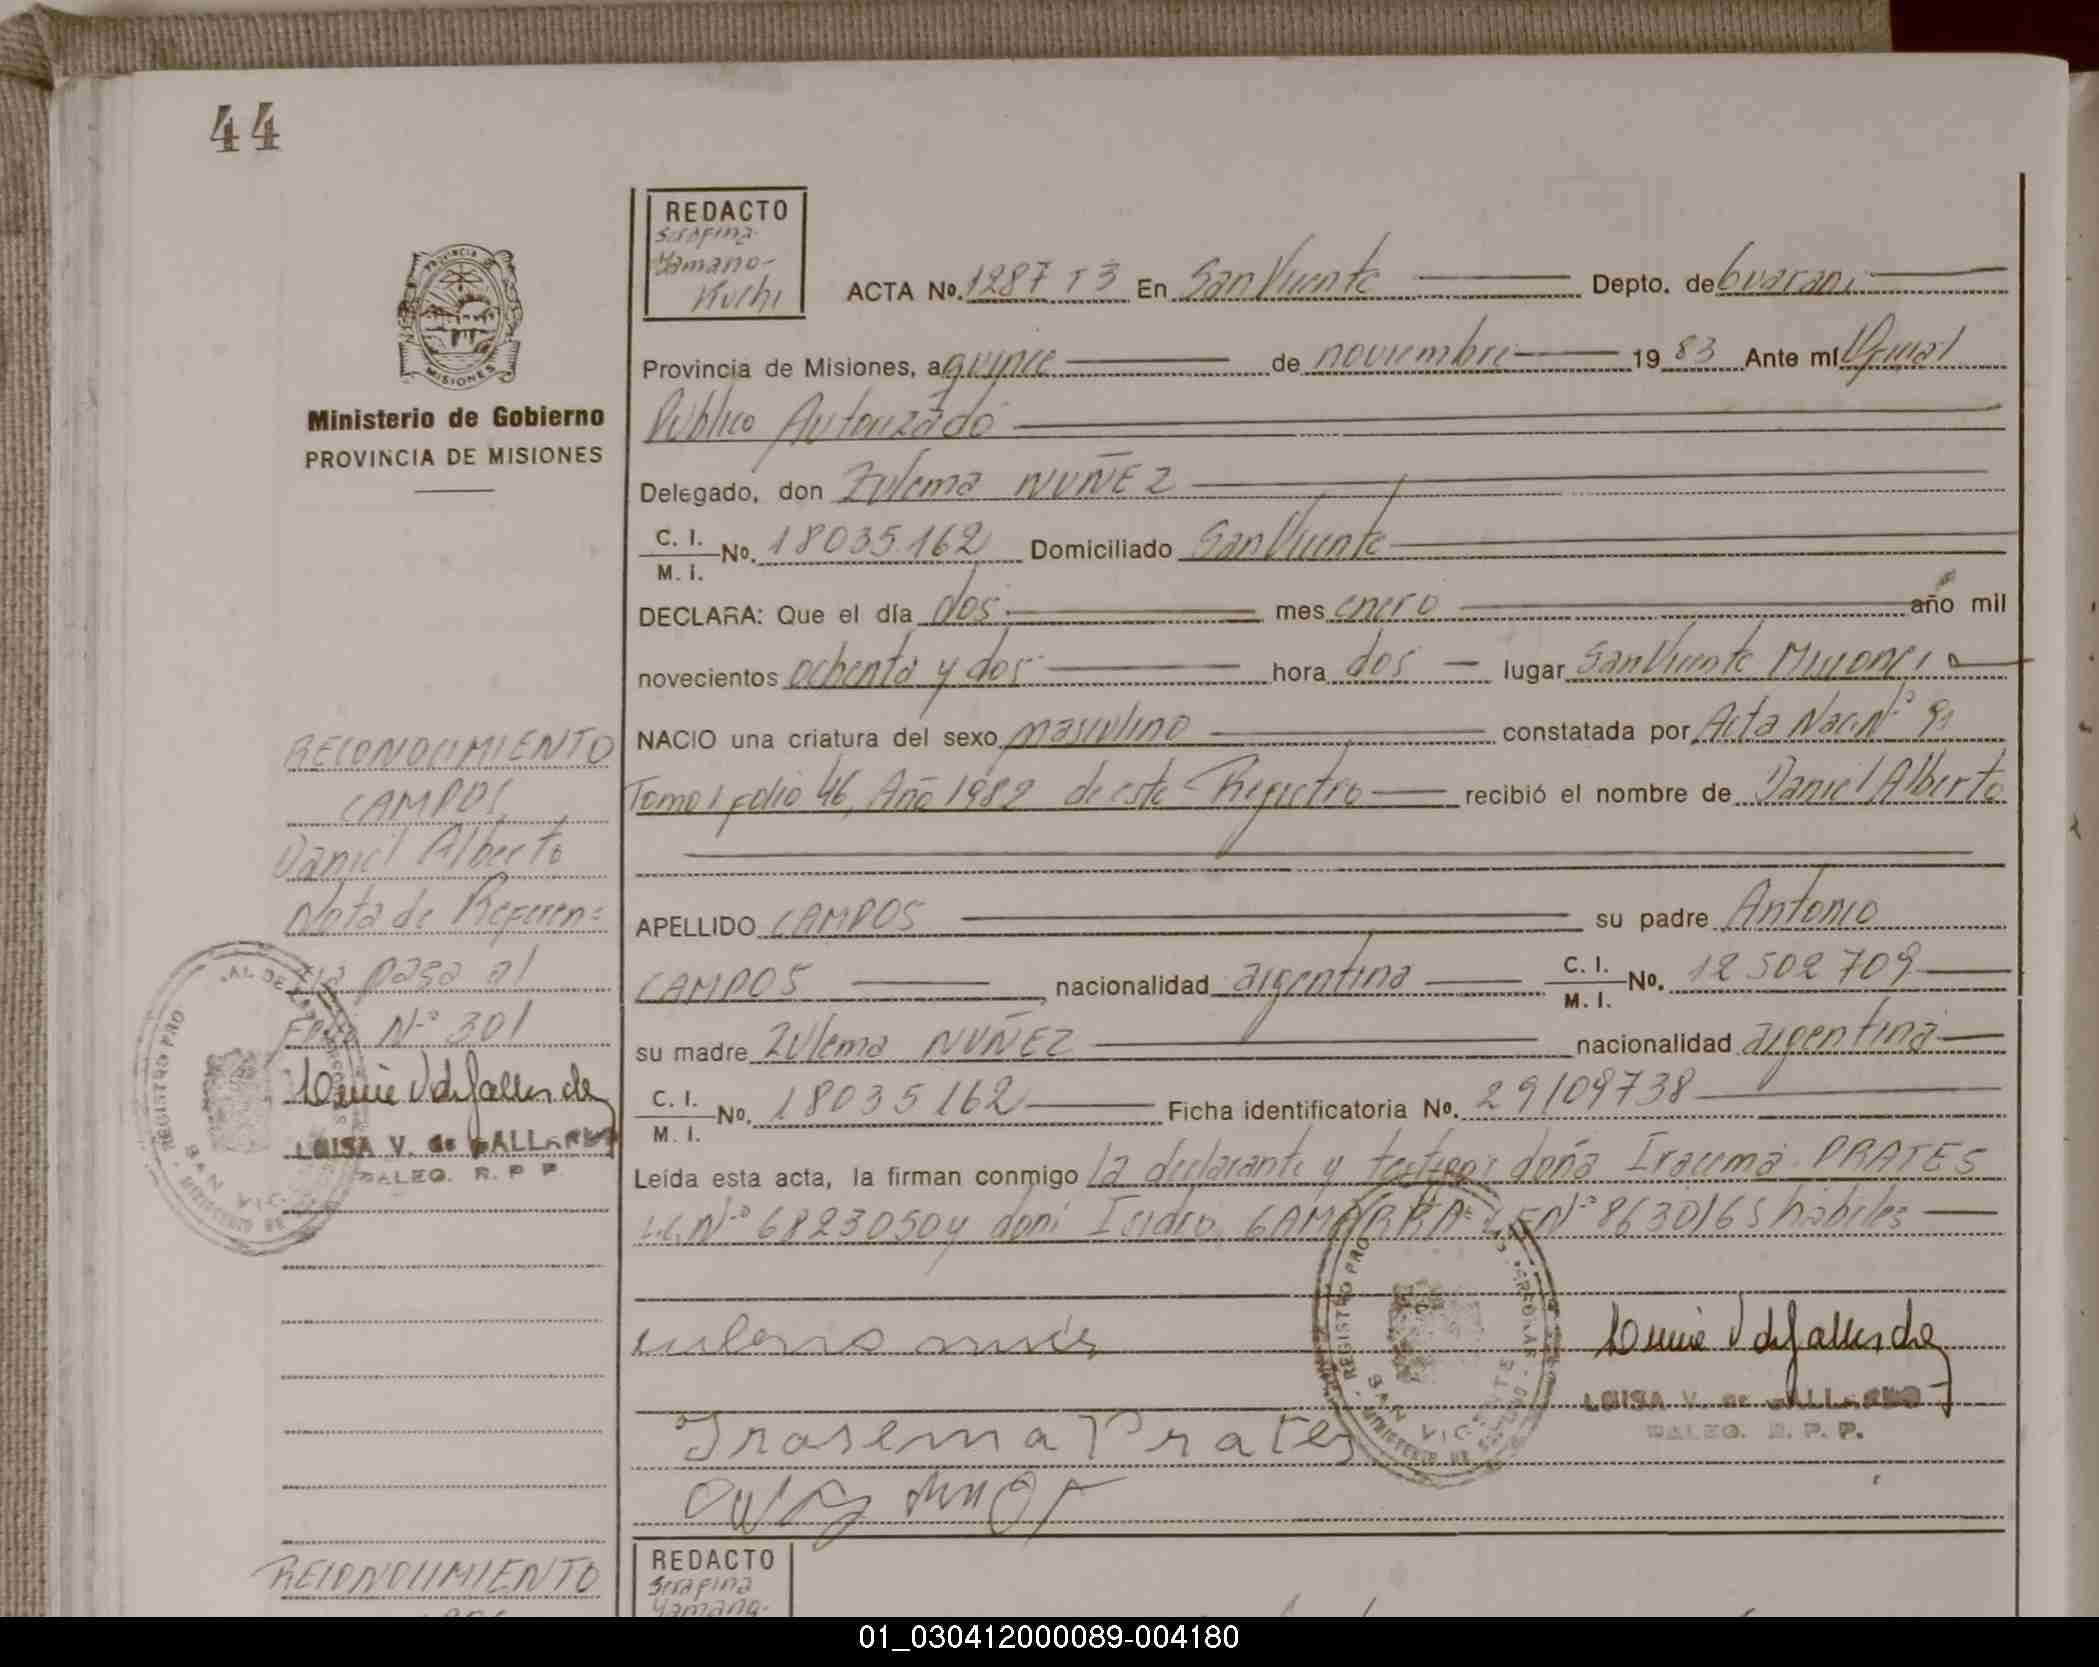 44
REDACTO
Serafina
Yamano-
Kuchi
ACTA No. 1287 T 3 En San Vicente Depto. de Guarani
Provincia de Misiones, a quince de noviembre 19 83 Ante mí Oficial
Público Autorizado
Ministerio de Gobierno
PROVINCIA DE MISIONES
Delegado, don Zulema NUÑEZ
C. I. M. I. No. 18035.162 Domiciliado San Vicente
DECLARA: Que el día dos mes enero año mil
novecientos ochenta y dos hora dos lugar San Vicente Misiones
NACIO una criatura del sexo masculino constatada por Acta Nac. Nº 91
Tomo 1 folio 46, Año 1982 de este Registro recibió el nombre de Daniel Alberto
APELLIDO CAMPOS su padre Antonio
CAMPOS nacionalidad argentina C. I. M. I. No. 12502709
su madre Zulema NUÑEZ nacionalidad argentina
C. I. M. I. No. 18035162 Ficha identificatoria No. 29109738
Leída esta acta, la firman conmigo la declarante y testigos doña Iracema PRATES
L.C. Nº 6823050 y don Isidro GAMARRA L.E Nº 8630165 hábiles
RECONOCIMIENTO
CAMPOS,
Daniel Alberto
Nota de Referen=
cia pasa al
Folio Nº 301
LUISA V. de GALLARDO
DALEG. R. P. P.
REGISTRO PRO
SAN VIC
MINISTERIO DE
Irasema Prates
REGISTRO PRO
SAN VICENTE
MINISTERIO DE
LUISA V. de GALLARDO
DALEG. R. P. P.
RECONOCIMIENTO
REDACTO
Serafina
Yamano-
01_030412000089-004180